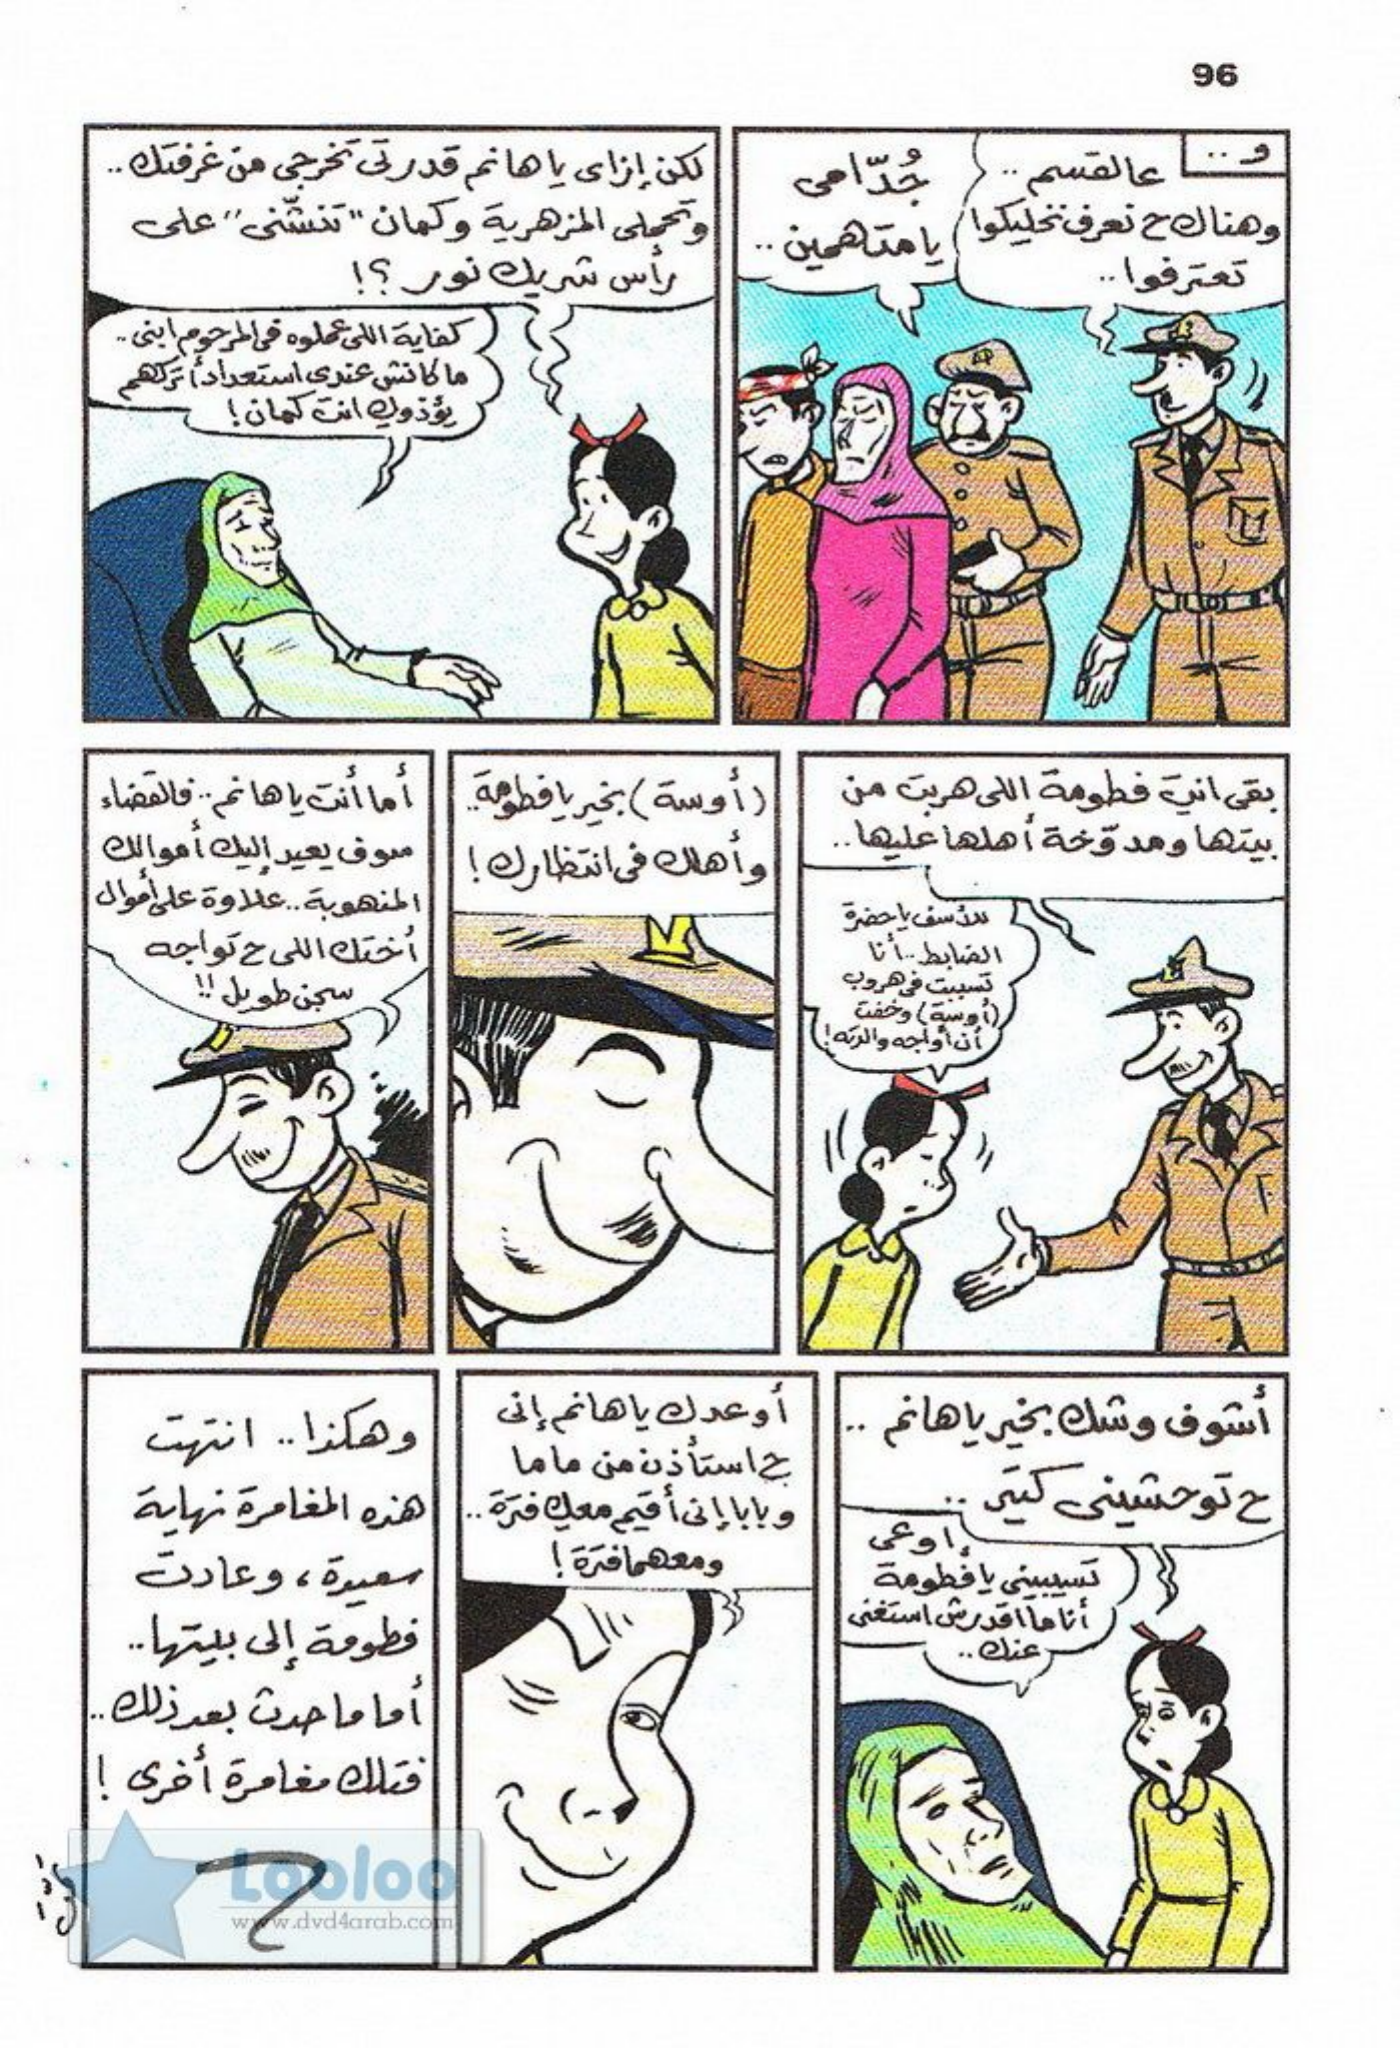 96
و ..
عالقسم ..
وهناك ح نعرف نخليكوا
تعترفوا ..
جُدّامى
يا متاهمين ..
لكن إزاى يا هانم قدرتى تخرجى من غرفتك ..
وتحملى المزهرية وكمان "تنشّنى" على
رأس شريك نور ؟!
كفاية اللى عملوه فى المرحوم ابنى ..
ما كانش عندى استعداد أتركهم
يؤذوكِ انتِ كمان !
بقى انتِ فطومة اللى هربت من
بيتها ومدوّخة أهلها عليها ..
للأسف يا حضرة
الضابط .. أنا
تسببت فى هروب
(أوسة) وخفت
أن أواجه والدته !
(أوسة) بخير يا فطومة ..
وأهلك فى انتظارك !
أما أنت يا هانم .. فالقضاء
سوف يعيد إليك أموالك
المنهوبة .. علاوة على أموال
أختك اللى ح تواجه
سجن طويل !!
أشوف وشك بخير يا هانم ..
ح توحشينى كتير ..
اوعى
تسيبينى يا فطومة
أنا ما اقدرش استغنى
عنك ..
أوعدك يا هانم إنى
ح استأذن من ماما
وبابا إنى أقيم معاكِ فترة ..
ومعهما فترة !
وهكذا .. انتهت
هذه المغامرة نهاية
سعيدة ، وعادت
فطومة إلى بيتها ..
أما ما حدث بعد ذلك ..
فتلك مغامرة أخرى !
Looloo
www.dvd4arab.com